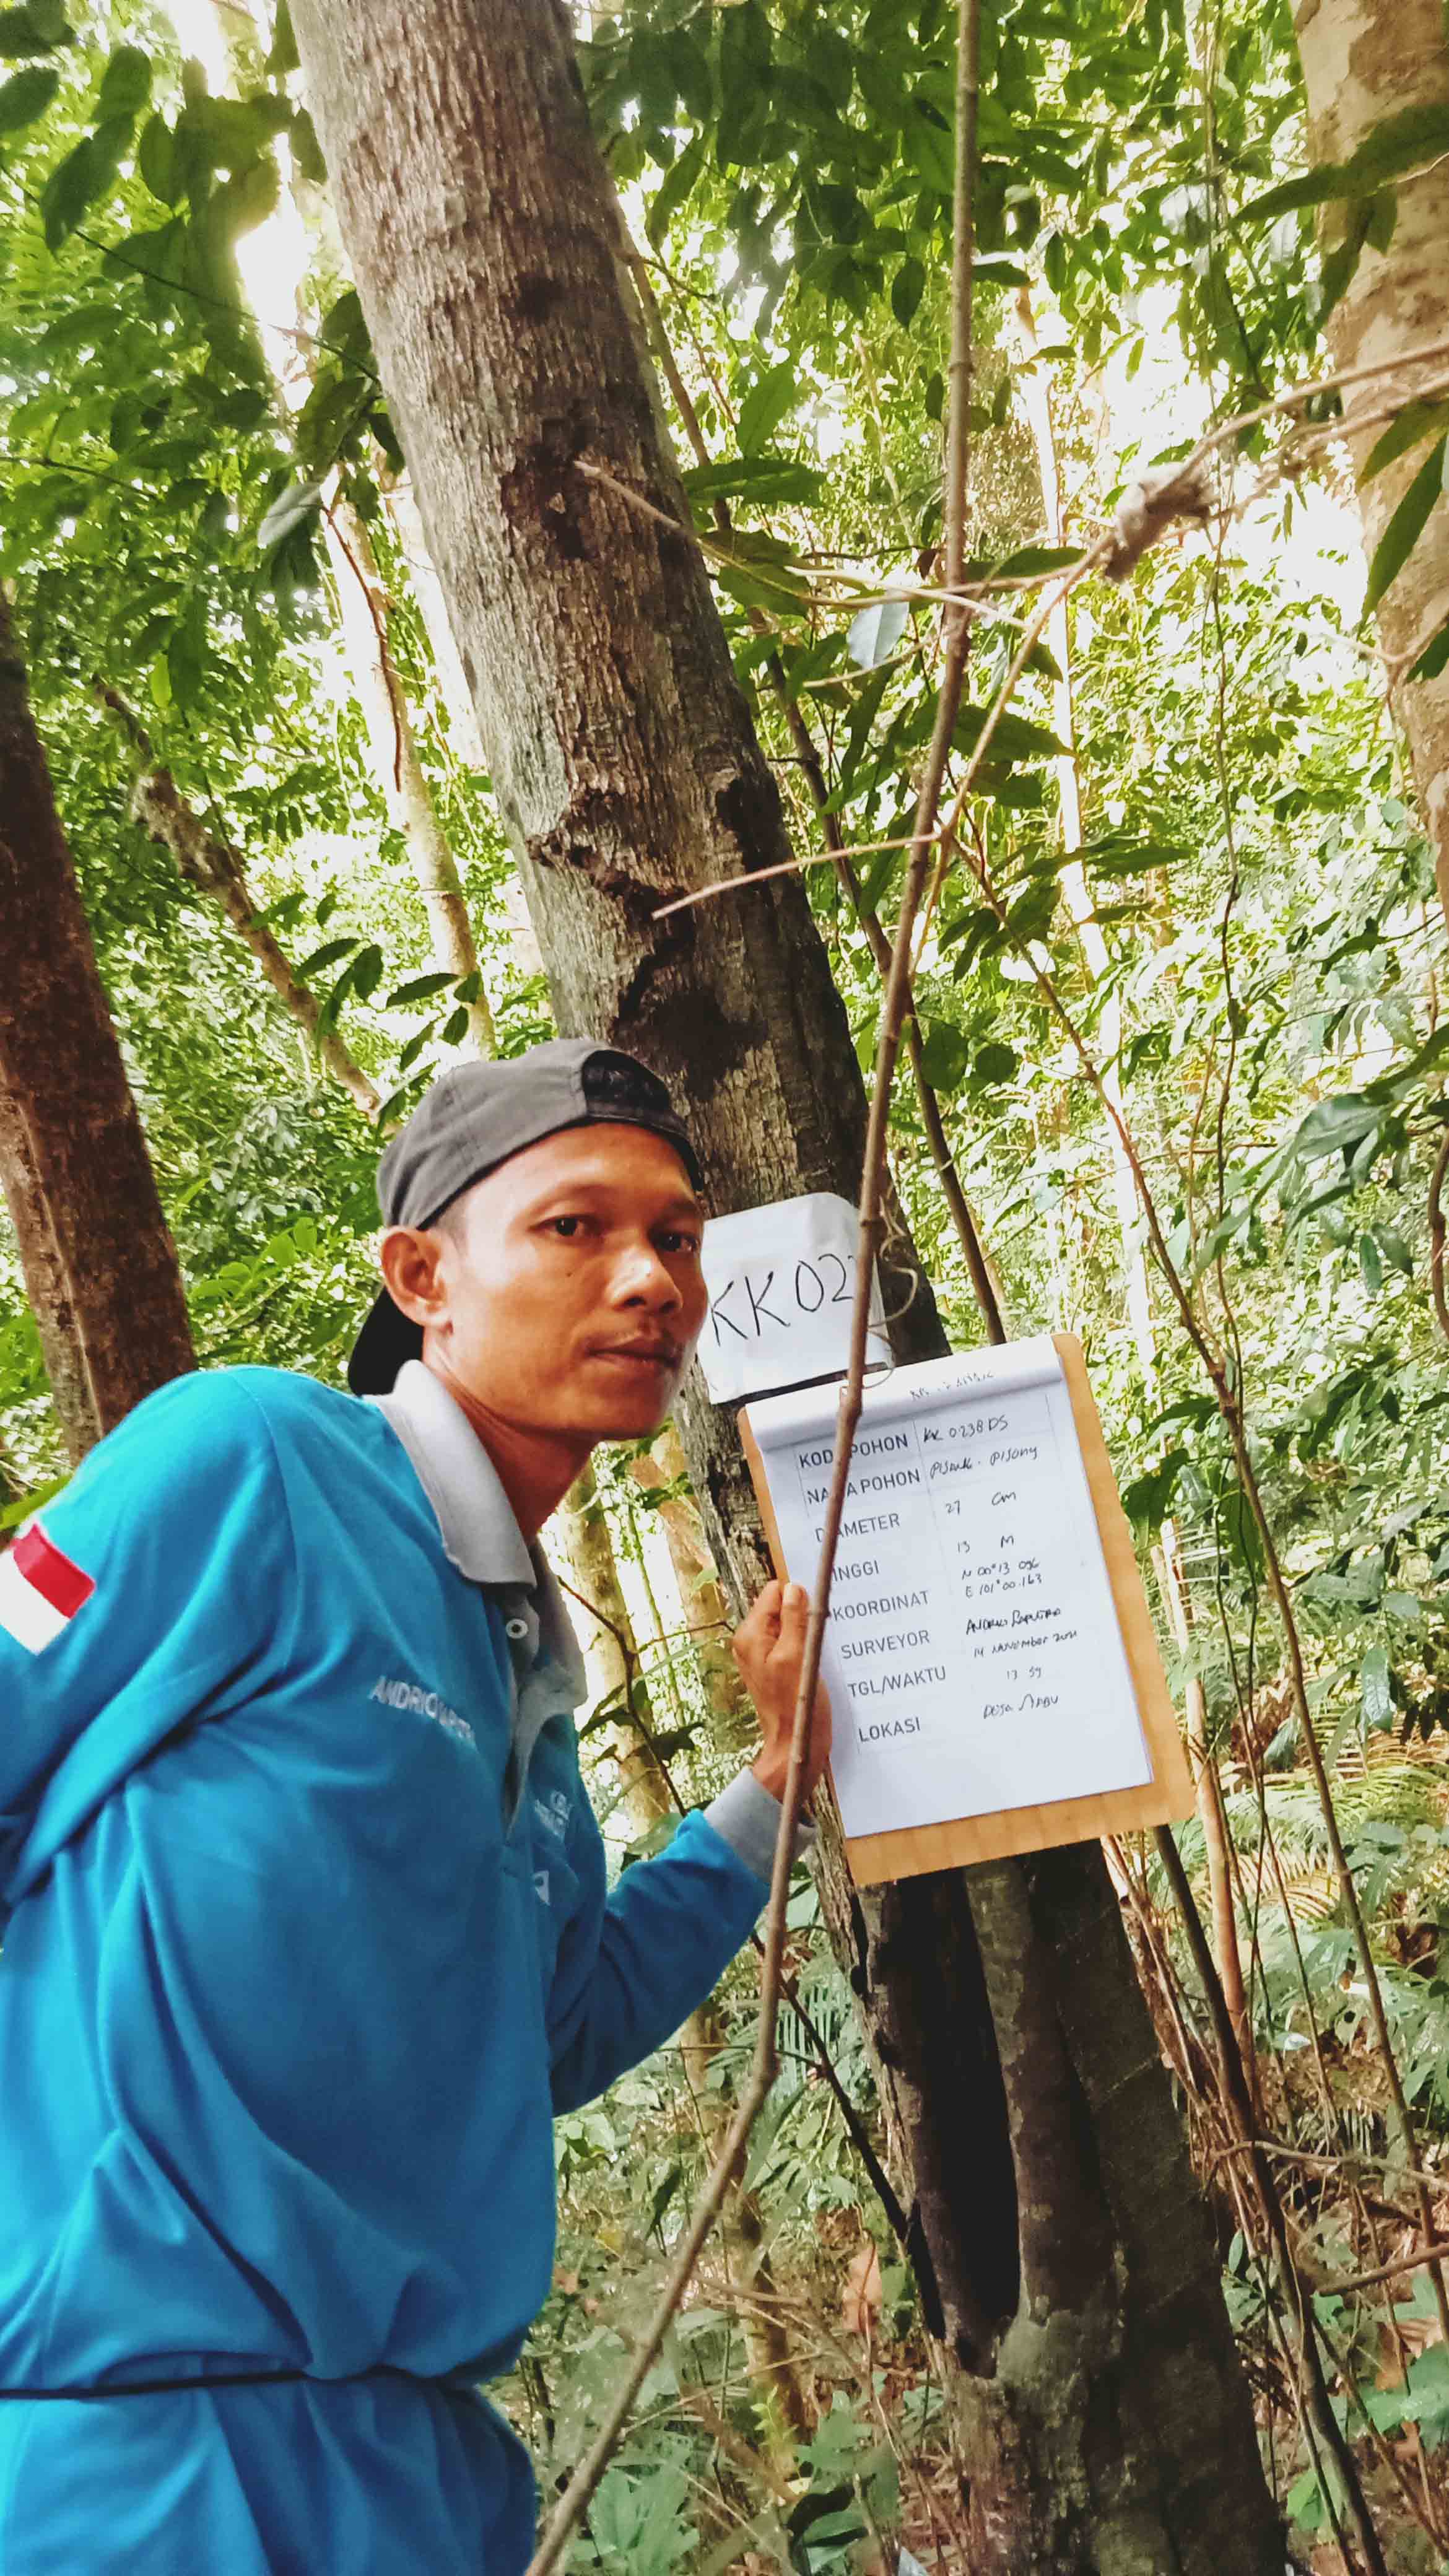 KK 023
KODE POHON KK 0238 DS
NAMA POHON PISANG - PISANG
DIAMETER 27 CM
TINGGI 13 M
KOORDINAT N 00°13 096
E 101°00.163
SURVEYOR ANDRIO SAPUTRA
TGL/WAKTU 14 NOVEMBER 2021
13 59
LOKASI DESA
ANDRIO